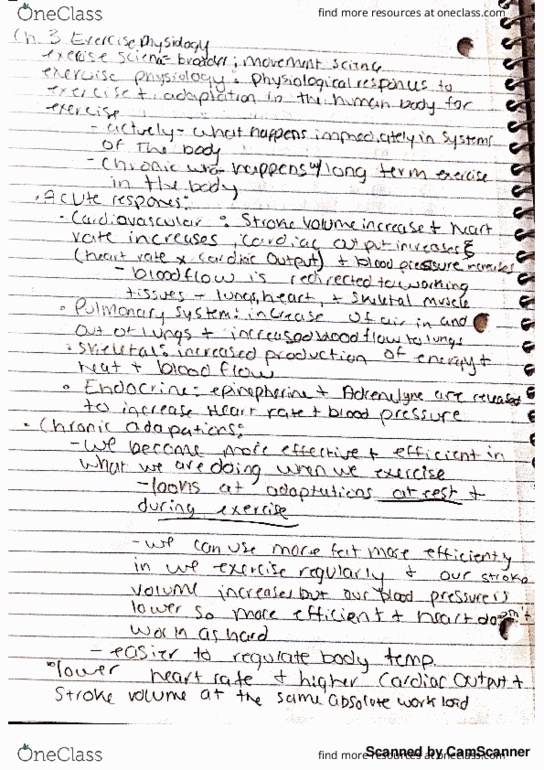 OneClass
find more resources at oneclass.com
Ch. 3 Exercise Physiology
exercise science broader; movement science
exercise physiology: physiological responses to
exercise + adaptation in the human body for
exercise
- actuely - what happens immediately in systems
of the body
- chronic happens w/ long term exercise
in the body
• Acute respons:
• Cardiovascular: Stroke volume increase + heart
rate increases, cardiac output increases
(heart rate x cardiac output) + blood pressure increases
- bloodflow is redirected to working
tissues - lungs, heart, + skeletal muscle
• Pulmonary system: increase of air in and
out of lungs + increased blood flow to lungs
• Skeletal: increased production of energy +
heat + blood flow
• Endocrine: epinepherine + Adrenelyne are released
to increase heart rate + blood pressure
• Chronic adapations:
- we become more effective + efficient in
what we are doing when we exercise
- looks at adaptations at rest +
during exercise
- we can use more fat more efficiently
in we exercise regularly + our stroke
volume increases but our blood pressure is
lower so more efficient + heart doesn't
work as hard
- easier to regulate body temp.
• lower heart rate + higher cardiac output +
stroke volume at the same absolute work load
OneClass
find more resources at oneclass.com
Scanned by CamScanner